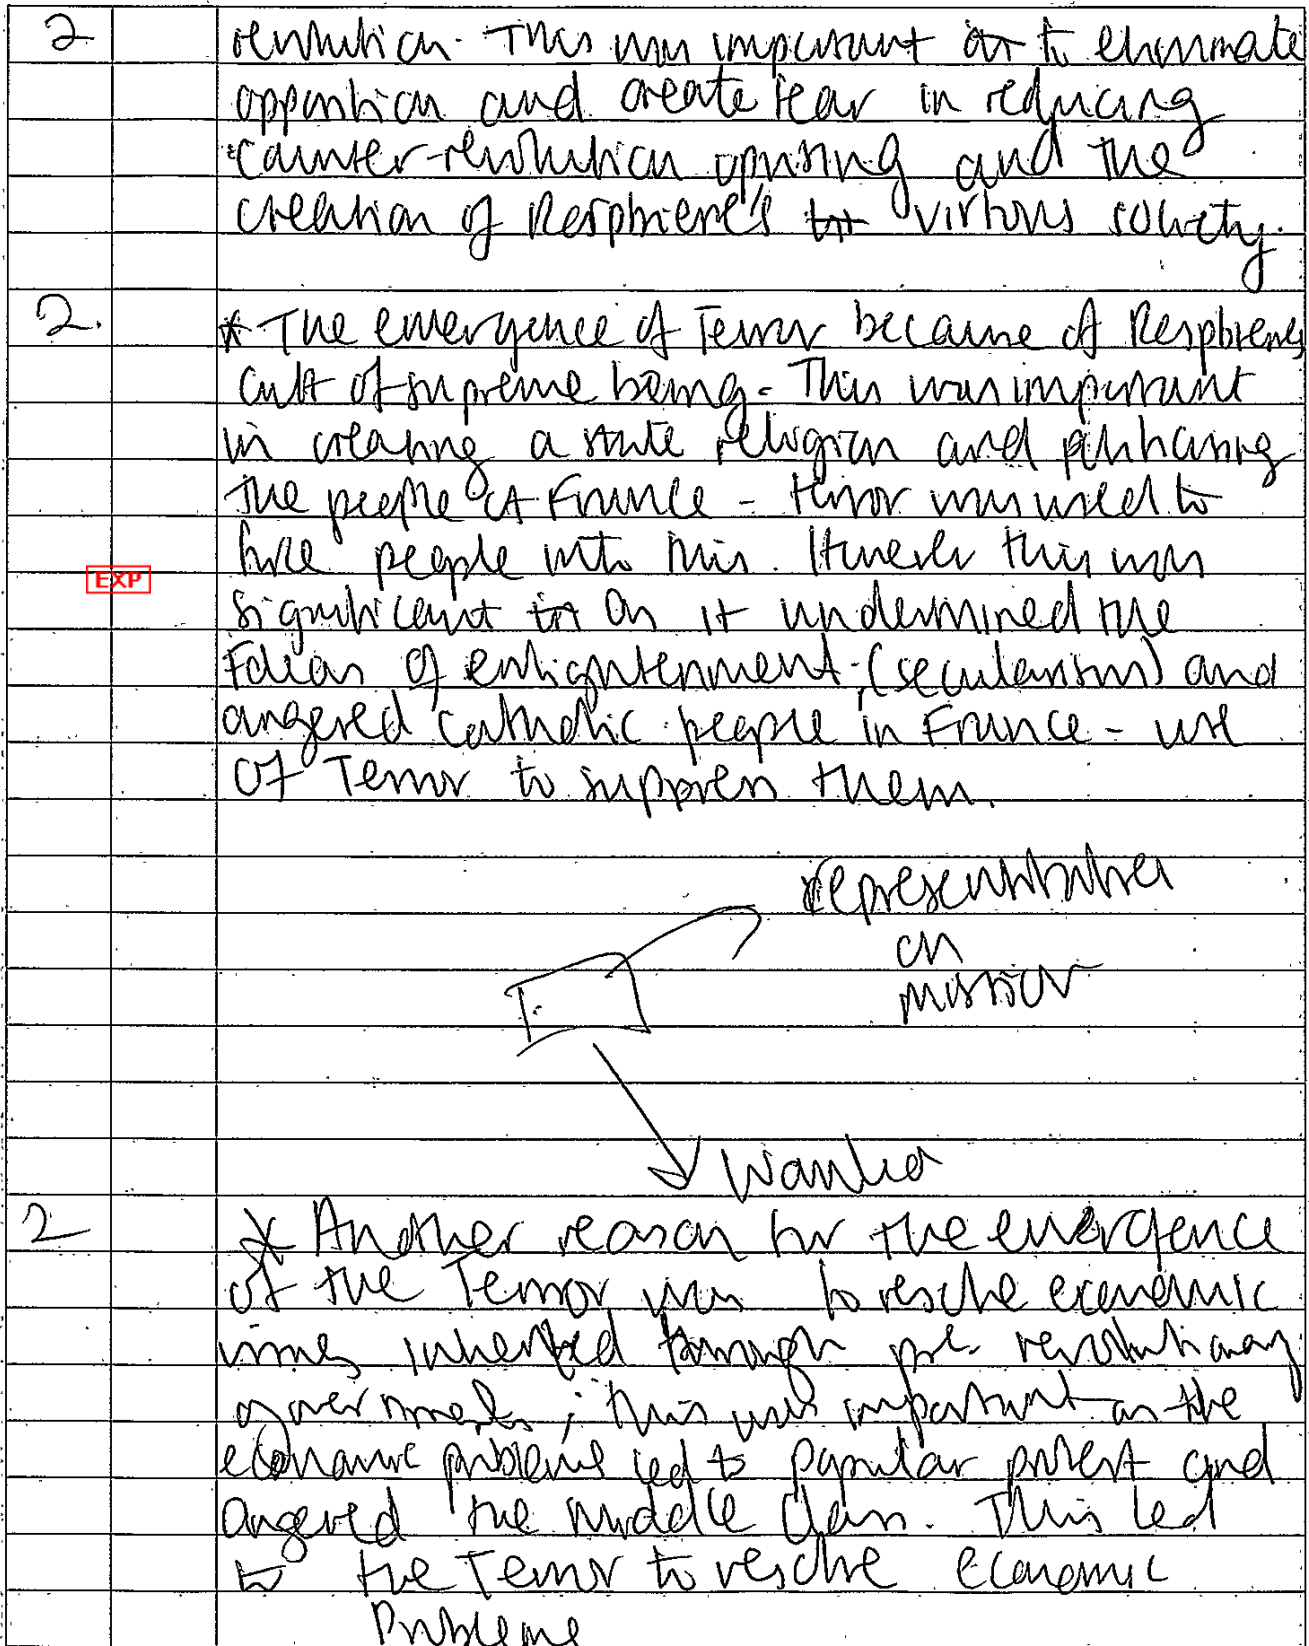 2 revolution. This was important as to eliminate
opposition and create fear in reducing
counter-revolution uprising and the
creation of Respbiere's virtous society.
2. * The emergence of Terror because of Respbieres
cult of supreme being - This was important
in creating a state religion and
the people of France - terror was used to
force people into this. However this was
EXP
significant in as it undermined the
Ideas of enlightenment (secularism) and
angered catholic people in France - use
of Terror to suppress them.
representatives
on
mission
Wanted
2 * Another reason for the emergence
of the Terror was to resolve economic
issues inherited through pre- revolutionary
governments; this was important as the
economic problems led to popular protest and
angered the middle class. This led
to the Terror to resolve economic
Problems